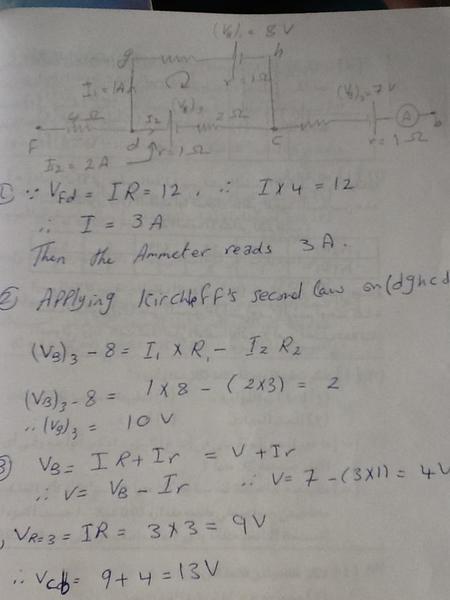 (VB)₁ = 8 V
g
h
I₁ = 1A
r = 1Ω
(VB)₃
(VB)₂ = 7 V
4 Ω
I₂
2 Ω
A
b
F
d
r = 1 Ω
C
r = 1 Ω
I₂ = 2 A
① ∵ VFd = IR = 12 , ∴ I x 4 = 12
∴ I = 3 A
Then the Ammeter reads 3 A.
② Applying Kirchoff's second law on (dghcd
(VB)₃ - 8 = I₁ x R₁ - I₂ R₂
(VB)₃ - 8 = 1 x 8 - (2x3) = 2
∴ (VB)₃ = 10 V
3 VB = IR + Ir = V + Ir
∴ V = VB - Ir ∴ V = 7 - (3x1) = 4V
, VR=3 = IR = 3 x 3 = 9V
∴ Vcb = 9 + 4 = 13V